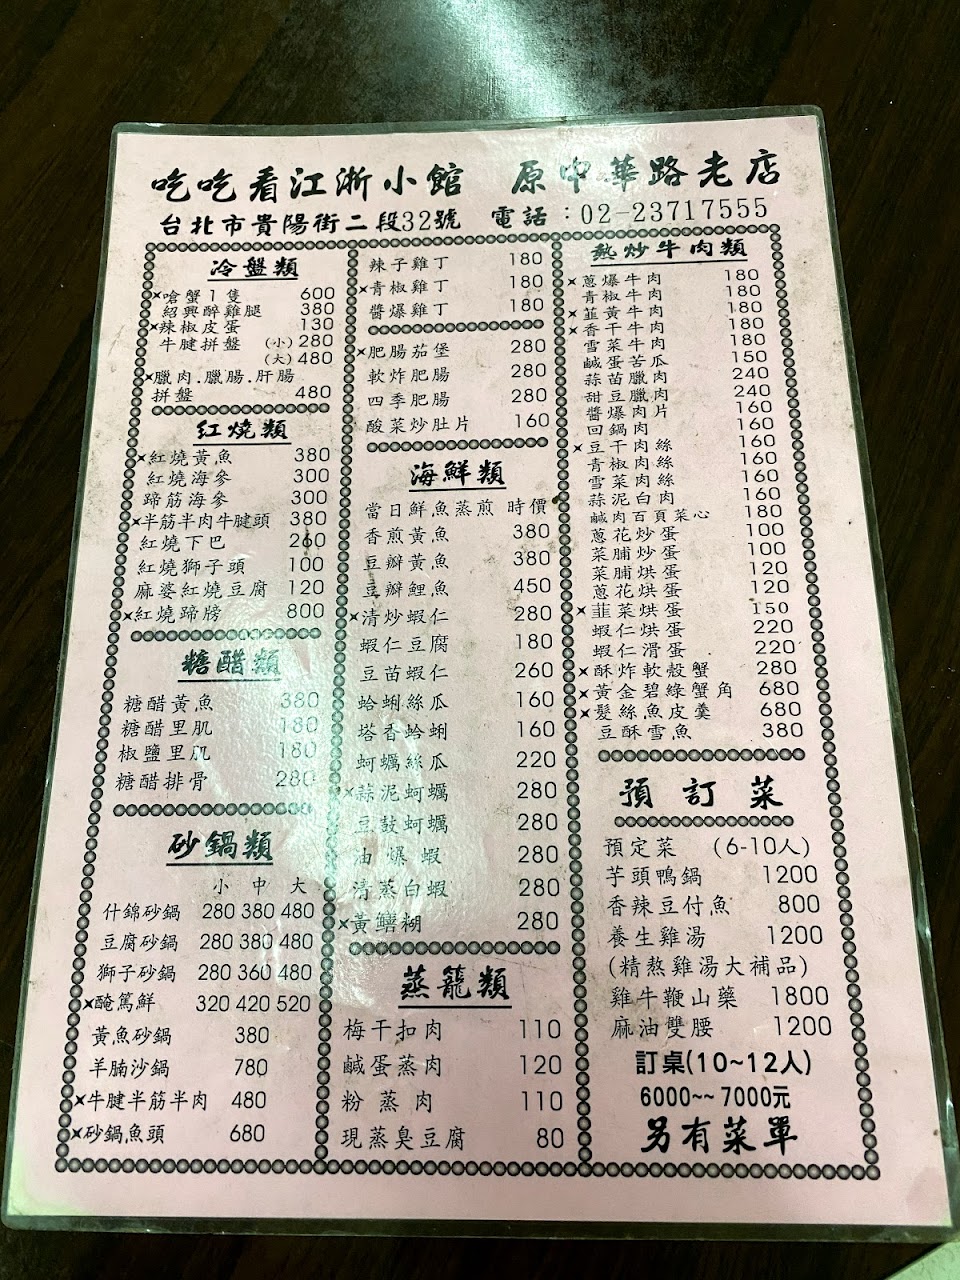 吃吃看江浙小館 原中華路老店
台北市貴陽街二段32號 電話:02-23717555
冷盤類
×嗆蟹1隻 600
紹興醉雞腿 380
×辣椒皮蛋 130
牛腱拼盤 (小)280
(大)480
×臘肉.臘腸.肝腸
拼盤 480
紅燒類
×紅燒黃魚 380
紅燒海參 300
蹄筋海參 300
×半筋半肉牛腱頭 380
紅燒下巴 260
紅燒獅子頭 100
麻婆紅燒豆腐 120
×紅燒蹄膀 800
糖醋類
糖醋黃魚 380
糖醋里肌 180
椒鹽里肌 180
糖醋排骨 280
砂鍋類
小 中 大
什錦砂鍋 280 380 480
豆腐砂鍋 280 380 480
獅子砂鍋 280 360 480
×醃篤鮮 320 420 520
黃魚砂鍋 380
羊腩沙鍋 780
×牛腱半筋半肉 480
×砂鍋魚頭 680
辣子雞丁 180
×青椒雞丁 180
醬爆雞丁 180
×肥腸茄堡 280
軟炸肥腸 280
四季肥腸 280
酸菜炒肚片 160
海鮮類
當日鮮魚蒸煎 時價
香煎黃魚 380
豆瓣黃魚 380
豆瓣鯉魚 450
×清炒蝦仁 280
蝦仁豆腐 180
豆苗蝦仁 260
蛤蜊絲瓜 160
塔香蛤蜊 160
蚵蠣絲瓜 220
×蒜泥蚵蠣 280
豆鼓蚵蠣 280
油爆蝦 280
清蒸白蝦 280
×黃鱔糊 280
蒸籠類
梅干扣肉 110
鹹蛋蒸肉 120
粉蒸肉 110
現蒸臭豆腐 80
熱炒牛肉類
×蔥爆牛肉 180
青椒牛肉 180
×韮黃牛肉 180
×香干牛肉 180
雪菜牛肉 180
鹹蛋苦瓜 150
蒜苗臘肉 240
甜豆臘肉 240
醬爆肉片 160
回鍋肉 160
×豆干肉絲 160
青椒肉絲 160
雪菜肉絲 160
蒜泥白肉 160
鹹肉百頁菜心 180
蔥花炒蛋 100
菜脯炒蛋 100
菜脯烘蛋 120
蔥花烘蛋 120
×韮菜烘蛋 150
蝦仁烘蛋 220
蝦仁滑蛋 220
×酥炸軟殼蟹 280
×黃金碧綠蟹角 680
×髮絲魚皮羹 680
豆酥雪魚 380
預訂菜
預定菜 (6-10人)
芋頭鴨鍋 1200
香辣豆付魚 800
養生雞湯 1200
(精熬雞湯大補品)
雞牛鞭山藥 1800
麻油雙腰 1200
訂桌(10~12人)
6000~~7000元
另有菜單